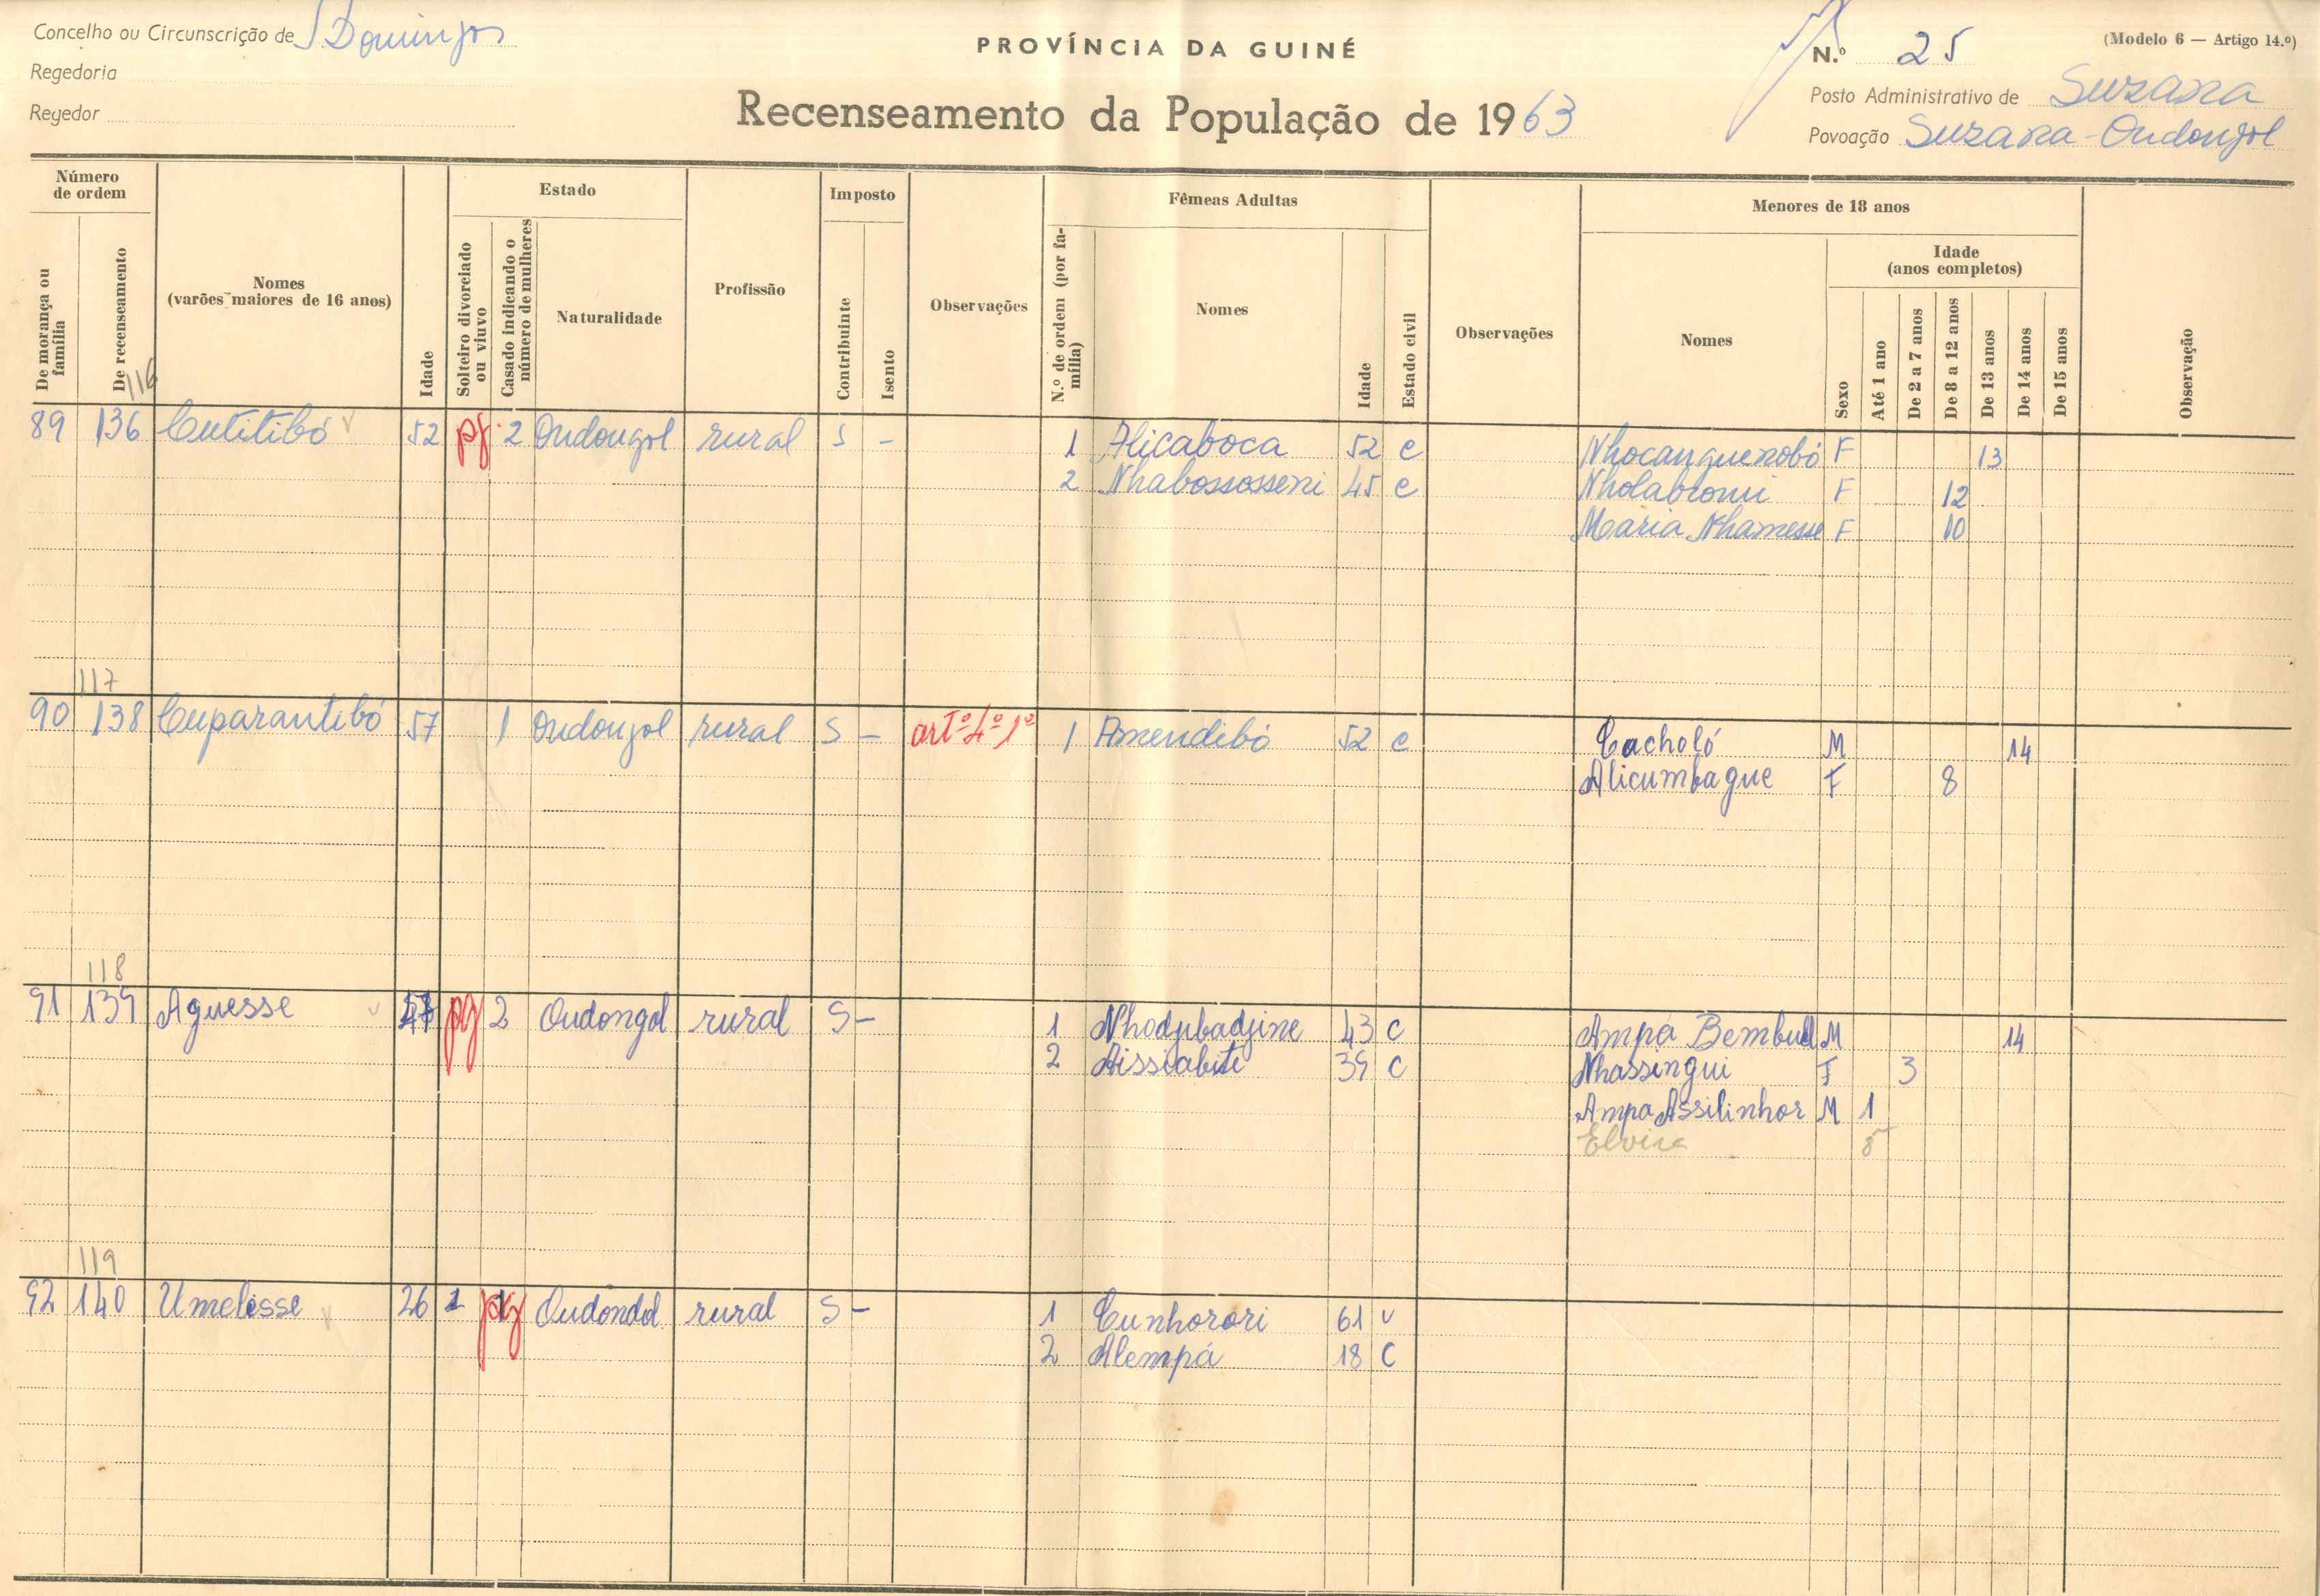 Concelho ou Circunscrição de S. Domingos
Regedoria
Regedor
PROVÍNCIA DA GUINÉ
Recenseamento da População de 1963
N.º 25
(Modelo 6 — Artigo 14.º)
Posto Administrativo de Suzana
Povoação Suzana - Oudongol
Número de ordem
De morança ou família
De recenseamento
Nomes (varões maiores de 16 anos)
Idade
Estado
Solteiro divorciado ou viuvo
Casado indicando o número de mulheres
Naturalidade
Profissão
Imposto
Contribuinte
Isento
Observações
Fêmeas Adultas
N.º de ordem (por família)
Nomes
Idade
Estado civil
Observações
Menores de 18 anos
Nomes
Sexo
Idade (anos completos)
Até 1 ano
De 2 a 7 anos
De 8 a 12 anos
De 13 anos
De 14 anos
De 15 anos
Observação
116
89 136 Cutitibó 52 pg 2 Oudongol rural S - 1 Alicaboca 52 c Nhocanguenobó F 13
2 Nhabossosseni 45 c Nholabromi F 12
Maria Nhamesse F 10
117
90 138 Cuparantibó 57 1 Oudongol rural S - artº 4º 1º 1 Amendibó 52 c Cacholó M 14
Alicumbague F 8
118
91 139 Aguesse 47 pg 2 Oudongol rural S - 1 Nhodjibadjine 43 C Ampa Bembul M 14
2 Aissiabite 39 C Nhassingui F 3
Ampa Assilinhor M 1
Elvira 5
119
92 140 Umelisse 26 1 pg Oudondol rural S - 1 Cunhorori 61 v
2 Alempá 18 C